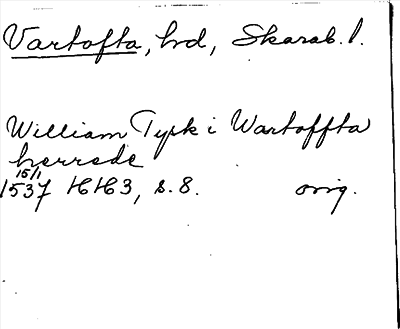 Vartofta, hd, Skarab. l.
William Tysk i Wartoffta
herrede
15/1
1537 HH3, s. 8. orig.